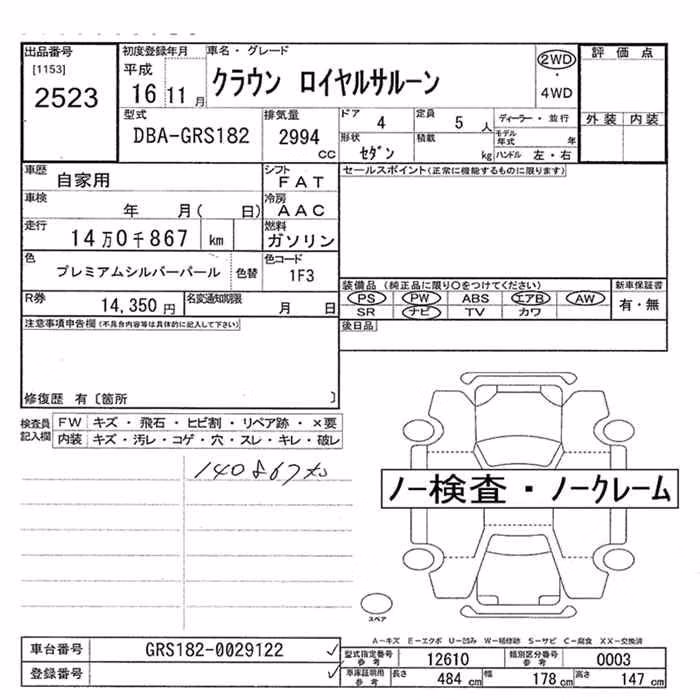 出品番号
[1153]
2523
初度登録年月
平成
16 11 月
車名・グレード
クラウン ロイヤルサルーン
2WD
・
4WD
評価点
外装 内装
型式
DBA-GRS182
排気量
2994
cc
ドア 4
定員 5 人
ディーラー・並行
形状 セダン
積載 kg
モデル年式 年
ハンドル 左・右
車歴 自家用
シフト FAT
セールスポイント(正常に機能するものに限ります)
車検 年 月( 日)
冷房 AAC
走行 14万0千867 km
燃料 ガソリン
色 プレミアムシルバーパール
色替
色コード 1F3
装備品(純正品に限り○をつけてください)
新車保証書
PS PW ABS エアB AW
SR ナビ TV カワ
有・無
R券 14,350 円
名変通知期限 月 日
後日品
注意事項申告欄(不具合内容等は具体的に記入して下さい)
修復歴 有〔箇所 〕
検査員記入欄
FW キズ・飛石・ヒビ割・リペア跡・×要
内装 キズ・汚レ・コゲ・穴・スレ・キレ・破レ
140867km
ノー検査・ノークレーム
スペア
A-キズ E-エクボ U-凹み W-補修跡 S-サビ C-腐食 XX-交換済
車台番号 GRS182-0029122
型式指定番号参考 12610
類別区分番号参考 0003
登録番号
車庫証明用参考
長さ 484 cm
幅 178 cm
高さ 147 cm